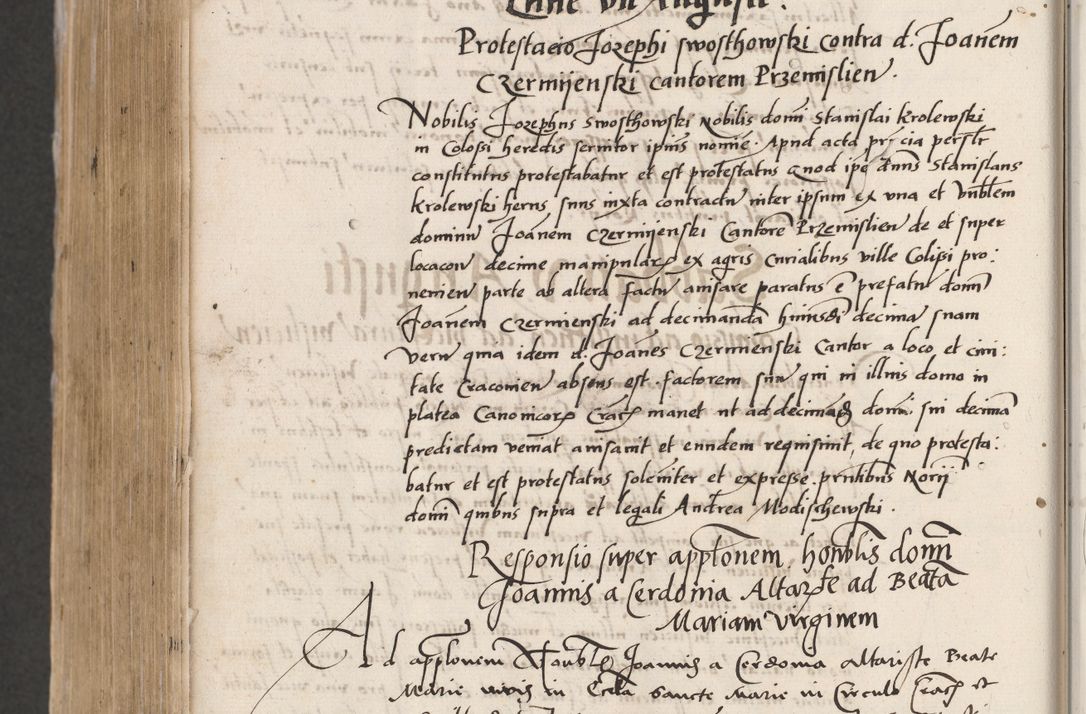 Lune VII Augusti.
Protestacio Jozephi swosthowski contra d. Joanem
Czermijenski cantorem Przemislien.
Nobilis Jozephus swosthowski Nobilis domi Stanislai krolewski
in Colossi heredis servitor ipius nomie. Apud acta pncia persolr
constitutus protestabatur et est protestatus quod ipe dnns Stanislaus
krolewski herus suus iuxta contractu inter ipsum ex una et Vnblem
dominu Joanem Czermijenski Cantore Przemislien de et super
locacoe decime manipular ex agris curialibus ville Colissi pro:
venien parte ab altera factu avisare paratus e prefatu domi
Joanem Czermienski ad decimanda huiusdi decima suam
Veru quia idem d. Joanes Czermienski Cantor a loco et civi:
tate Cracovien absens est. factorem suu qui in illius domo in
platea Canonicor Crac manet ut ad decimand domi sui decima
predictam veniat avisavit et eundem requisivit, de quo protesta:
batur et est protestatus solemniter et expresse pntibus Norij
domi quibus supra et legali Andrea Modischewski.
Responsio super appltonem honblis domi
Joannis a Cerdonia Altarste ad Beata
Mariam Virginem
Ad appltonem Honble Joannis a Cerdonia altariste Beate
Marie virgis in Eccla sancte Marie in Circulo Crac et